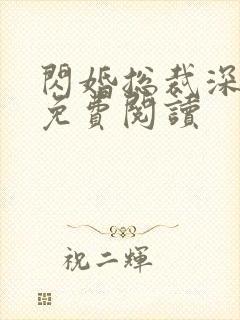 閃婚總裁深
免費閱讀
祝二輝